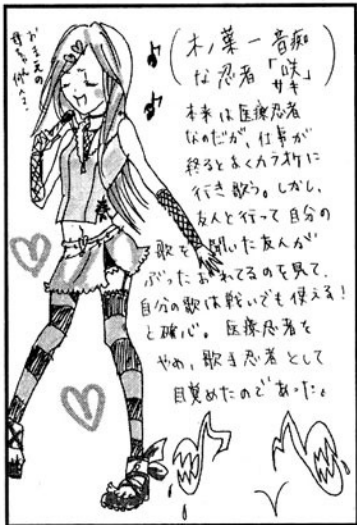 (木ノ葉一音痴
な忍者「咲」)
サキ
本来は医療忍者
なのだが、仕事が
終るとよくカラオケに
行き歌う。しかし、
友人と行って自分の
歌を聞いた友人が
ぶったおれてるのを見て、
自分の歌は戦いでも使える!
と確心。医療忍者を
やめ、歌手忍者として
目覚めたのであった。
おまえの